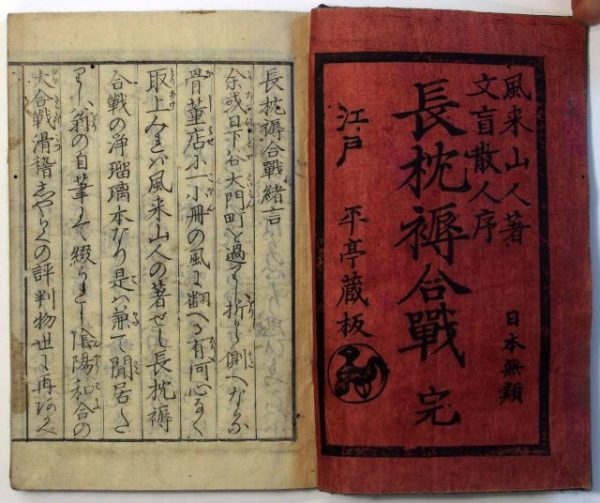 風来山人著
日本無類
文盲散人序
長枕褥合戰 完
江戸 平亭蔵板
長枕褥合戰緒言
余或日下谷大門町を過る折から側へなる
骨董店に一小冊の風に翻へる有何心なく
取上みれバ風来山人の著せし長枕褥
合戦の浄瑠璃本なり是ハ兼て聞居た
り翁の自筆にて綴られし陰陽和合の
大合戰滑稽しやらくの評判物世に再